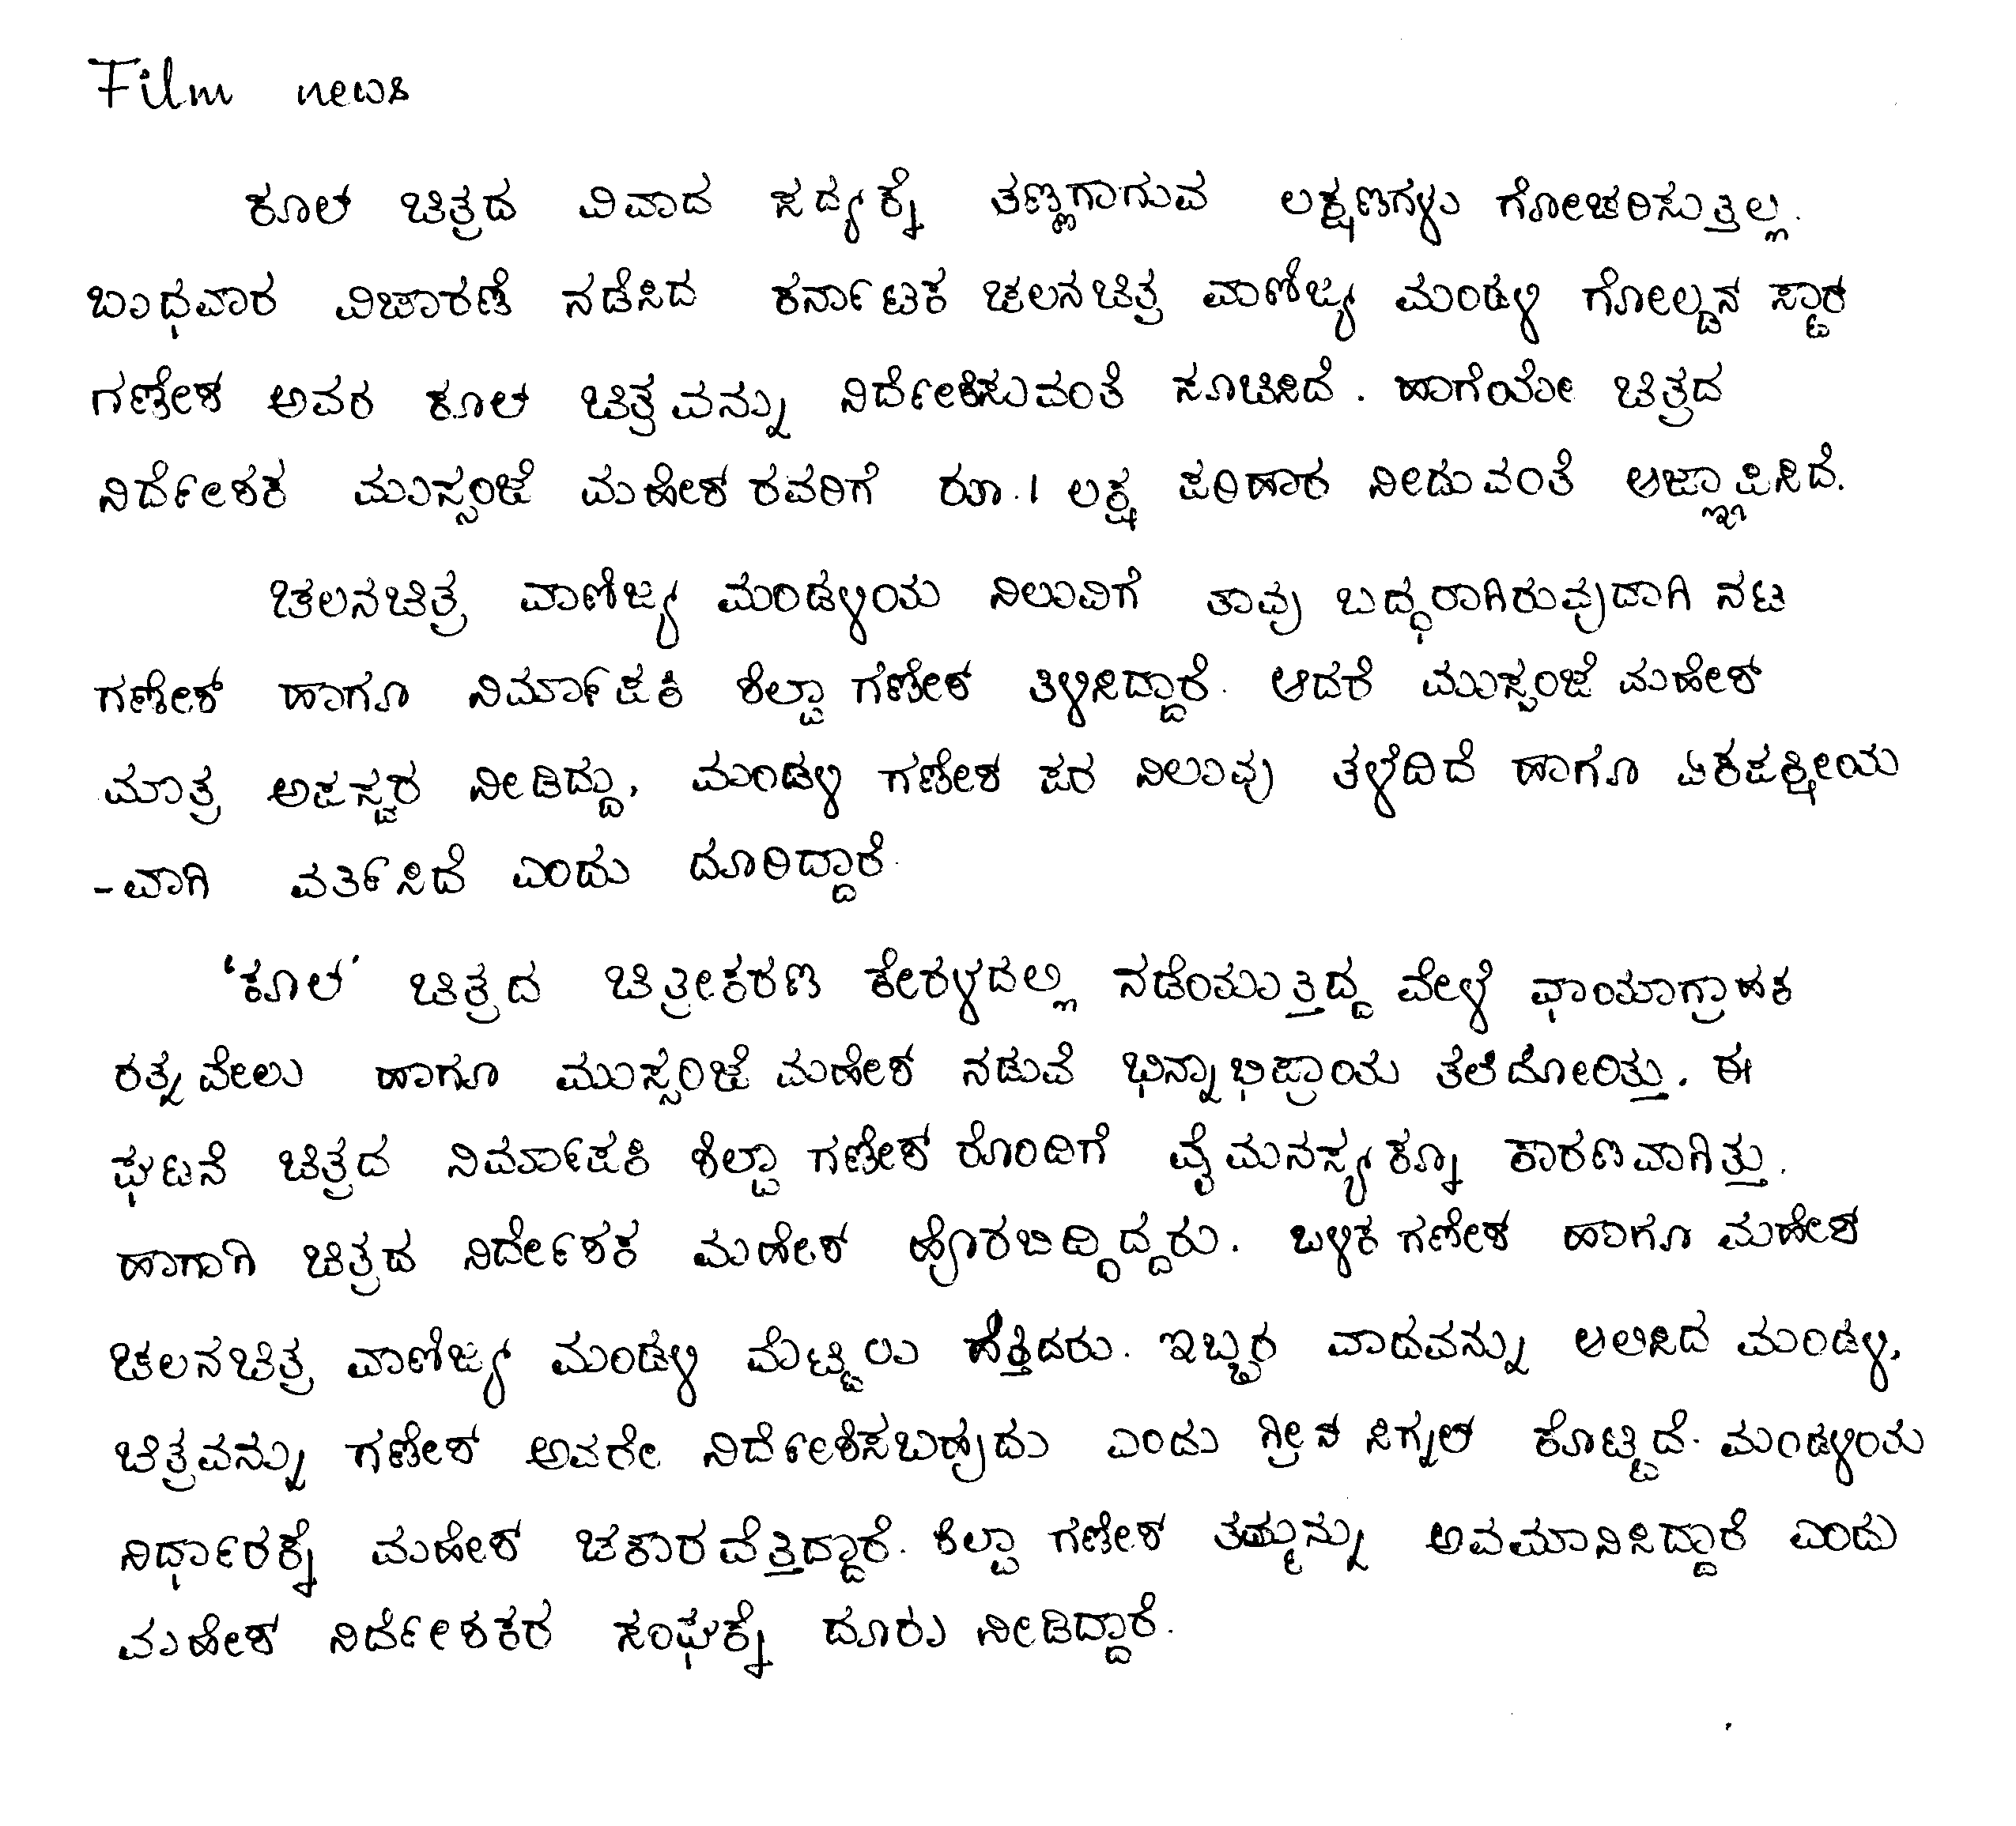 Film news
ಕೂಲ್ ಚಿತ್ರದ ವಿವಾದ ಸದ್ಯಕ್ಕೆ ತಣ್ಣಗಾಗುವ ಲಕ್ಷಣಗಳು ಗೋಚರಿಸುತ್ತಿಲ್ಲ.
ಬುಧವಾರ ವಿಚಾರಣೆ ನಡೆಸಿದ ಕರ್ನಾಟಕ ಚಲನಚಿತ್ರ ವಾಣಿಜ್ಯ ಮಂಡಳಿ ಗೋಲ್ಡನ್ ಸ್ಟಾರ್
ಗಣೇಶ್ ಅವರ ಕೂಲ್ ಚಿತ್ರವನ್ನು ನಿರ್ದೇಶಿಸುವಂತೆ ಸೂಚಿಸಿದೆ. ಹಾಗೆಯೇ ಚಿತ್ರದ
ನಿರ್ದೇಶಕ ಮುಸ್ಸಂಜೆ ಮಹೇಶ್ ರವರಿಗೆ ರೂ.1 ಲಕ್ಷ ಪರಿಹಾರ ನೀಡುವಂತೆ ಆಜ್ಞಾಪಿಸಿದೆ.
ಚಲನಚಿತ್ರ ವಾಣಿಜ್ಯ ಮಂಡಳಿಯ ನಿಲುವಿಗೆ ತಾವು ಬದ್ಧರಾಗಿರುವುದಾಗಿ ನಟ
ಗಣೇಶ್ ಹಾಗೂ ನಿರ್ಮಾಪಕಿ ಶಿಲ್ಪಾ ಗಣೇಶ್ ತಿಳಿಸಿದ್ದಾರೆ. ಆದರೆ ಮುಸ್ಸಂಜೆ ಮಹೇಶ್
ಮಾತ್ರ ಅಪಸ್ವರ ನೀಡಿದ್ದು, ಮಂಡಳಿ ಗಣೇಶ್ ಪರ ನಿಲುವು ತಳೆದಿದೆ ಹಾಗೂ ಏಕಪಕ್ಷೀಯ
-ವಾಗಿ ವರ್ತಿಸಿದೆ ಎಂದು ದೂರಿದ್ದಾರೆ.
'ಕೂಲ್' ಚಿತ್ರದ ಚಿತ್ರೀಕರಣ ಕೇರಳದಲ್ಲಿ ನಡೆಯುತ್ತಿದ್ದ ವೇಳೆ ಛಾಯಾಗ್ರಾಹಕ
ರತ್ನವೇಲು ಹಾಗೂ ಮುಸ್ಸಂಜೆ ಮಹೇಶ್ ನಡುವೆ ಭಿನ್ನಾಭಿಪ್ರಾಯ ತಲೆದೋರಿತ್ತು. ಈ
ಘಟನೆ ಚಿತ್ರದ ನಿರ್ಮಾಪಕಿ ಶಿಲ್ಪಾ ಗಣೇಶ್ ರೊಂದಿಗೆ ವೈಮನಸ್ಯಕ್ಕೂ ಕಾರಣವಾಗಿತ್ತು.
ಹಾಗಾಗಿ ಚಿತ್ರದ ನಿರ್ದೇಶಕ ಮಹೇಶ್ ಹೊರಬಿದ್ದಿದ್ದರು. ಬಳಿಕ ಗಣೇಶ್ ಹಾಗೂ ಮಹೇಶ್
ಚಲನಚಿತ್ರ ವಾಣಿಜ್ಯ ಮಂಡಳಿ ಮೆಟ್ಟಿಲು ಹತ್ತಿದರು. ಇಬ್ಬರ ವಾದವನ್ನು ಆಲಿಸಿದ ಮಂಡಳಿ,
ಚಿತ್ರವನ್ನು ಗಣೇಶ್ ಅವರೇ ನಿರ್ದೇಶಿಸಬಹುದು ಎಂದು ಗ್ರೀನ್ ಸಿಗ್ನಲ್ ಕೊಟ್ಟಿದೆ. ಮಂಡಳಿಯ
ನಿರ್ಧಾರಕ್ಕೆ ಮಹೇಶ್ ಚಕಾರವೆತ್ತಿದ್ದಾರೆ. ಶಿಲ್ಪಾ ಗಣೇಶ್ ತಮ್ಮನ್ನು ಅವಮಾನಿಸಿದ್ದಾರೆ ಎಂದು
ಮಹೇಶ್ ನಿರ್ದೇಶಕರ ಸಂಘಕ್ಕೆ ದೂರು ನೀಡಿದ್ದಾರೆ.